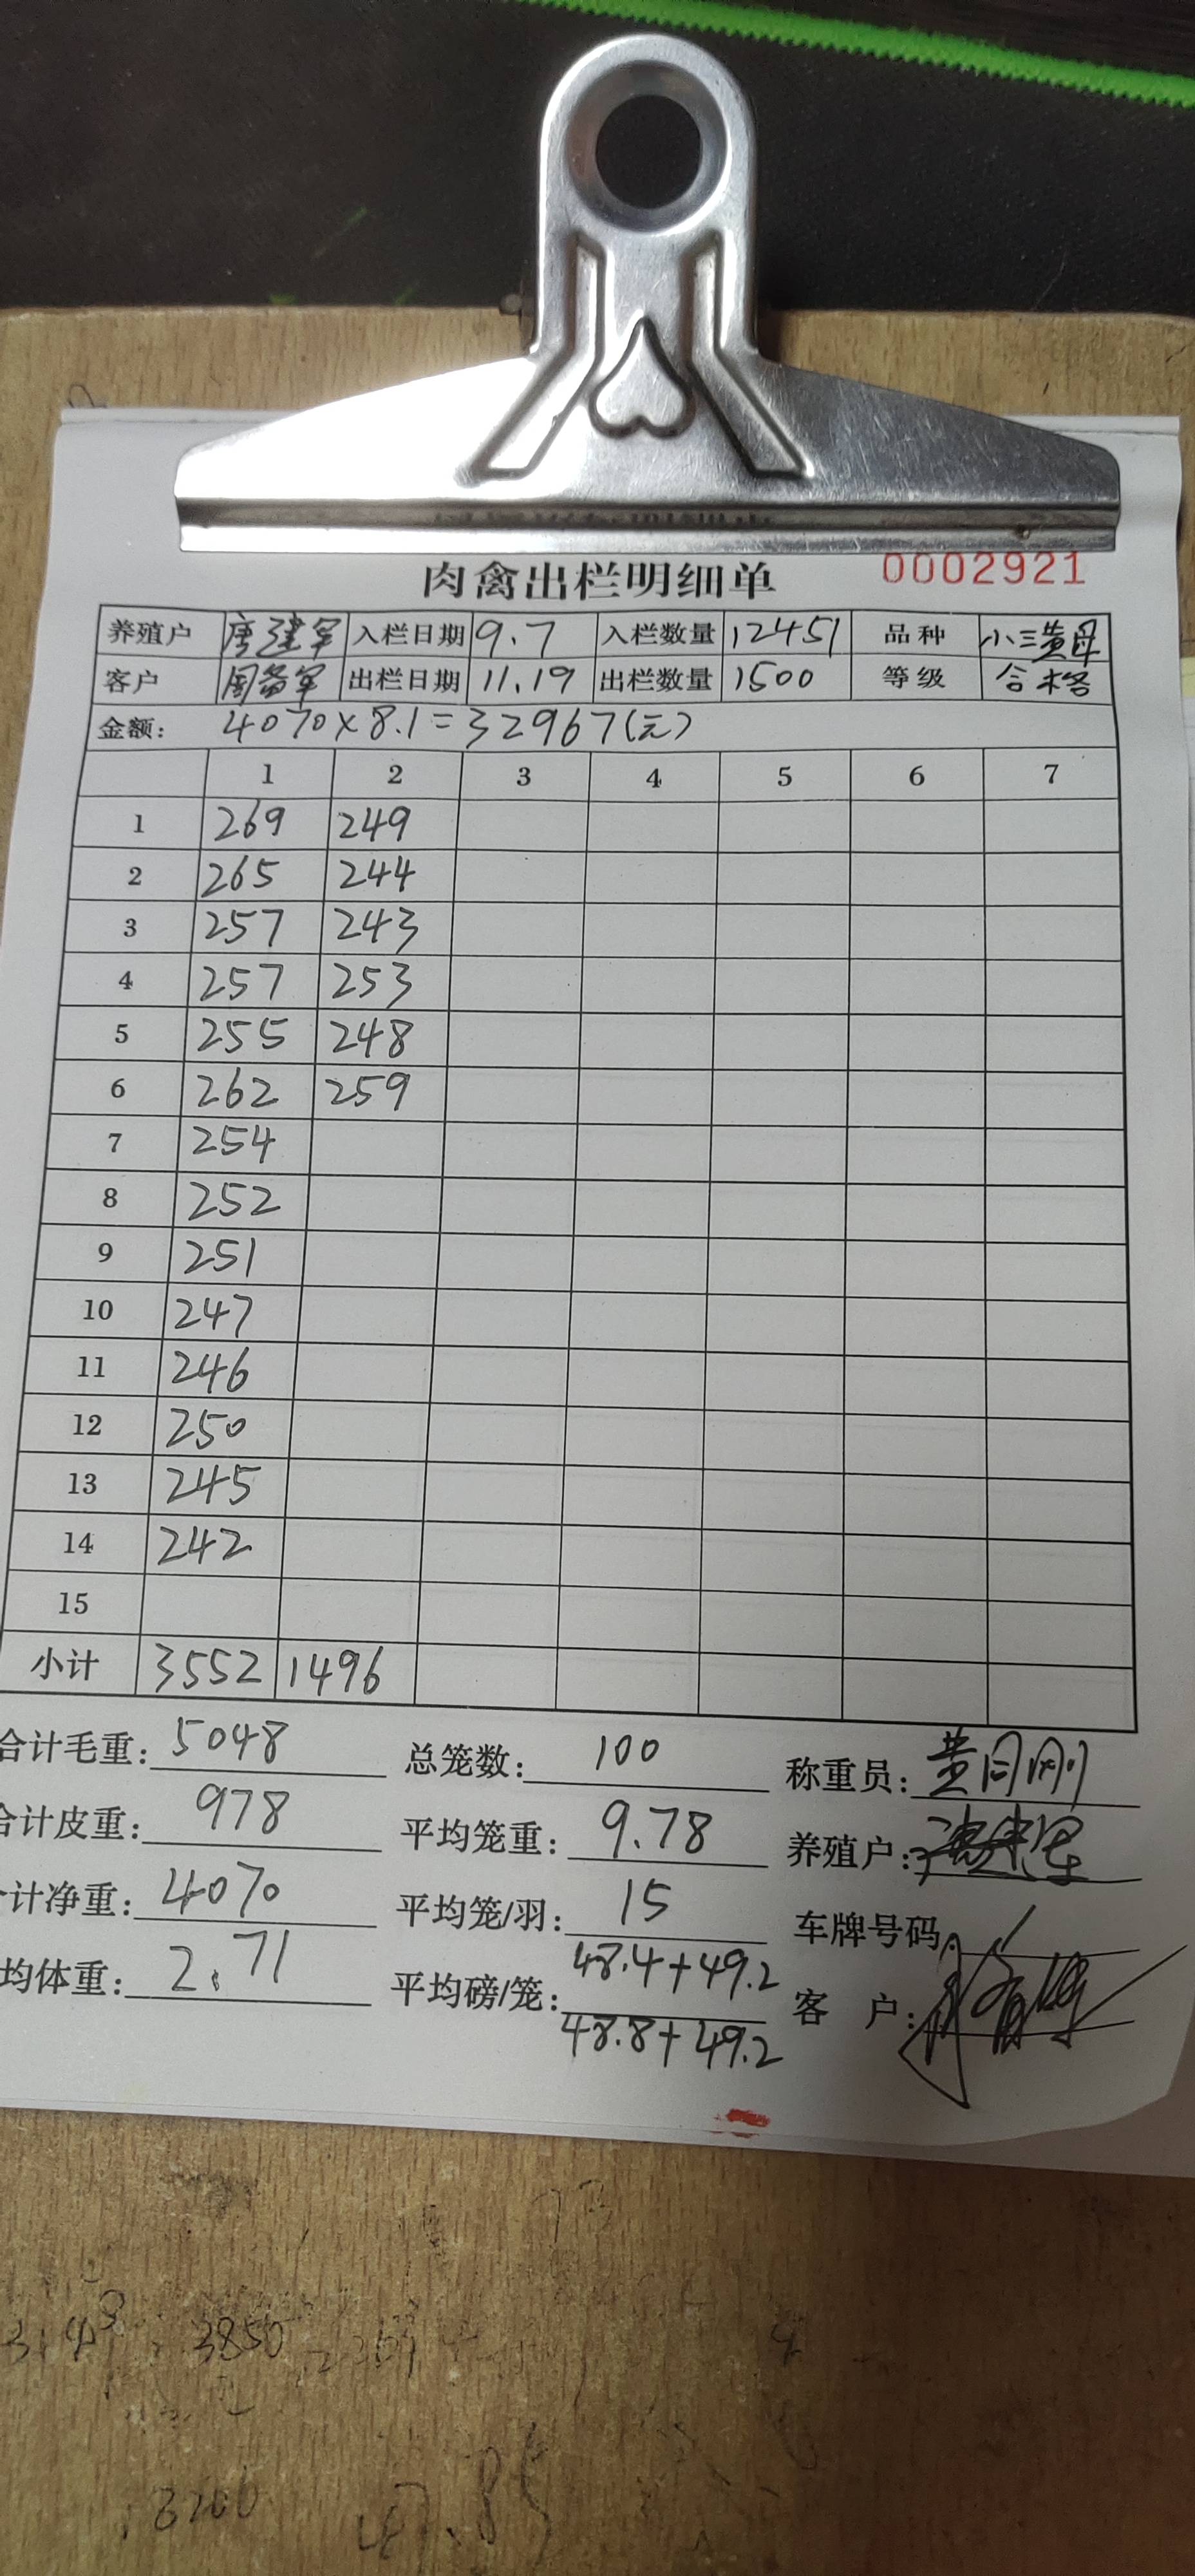 肉禽出栏明细单 0002921
养殖户 唐建军 入栏日期 9.7 入栏数量 12451 品种 小三黄母
客户 周备军 出栏日期 11.19 出栏数量 1500 等级 合格
金额: 4070×8.1=32967(元)
1 2 3 4 5 6 7
1 269 249
2 265 244
3 257 243
4 257 253
5 255 248
6 262 259
7 254
8 252
9 251
10 247
11 246
12 250
13 245
14 242
15
小计 3552 1496
合计毛重: 5048 总笼数: 100 称重员: 黄月刚
合计皮重: 978 平均笼重: 9.78 养殖户:
计净重: 4070 平均笼/羽: 15 车牌号码
均体重: 2.71 平均磅/笼: 48.4+49.2 客 户:
48.8+49.2
3850
3200
47.85